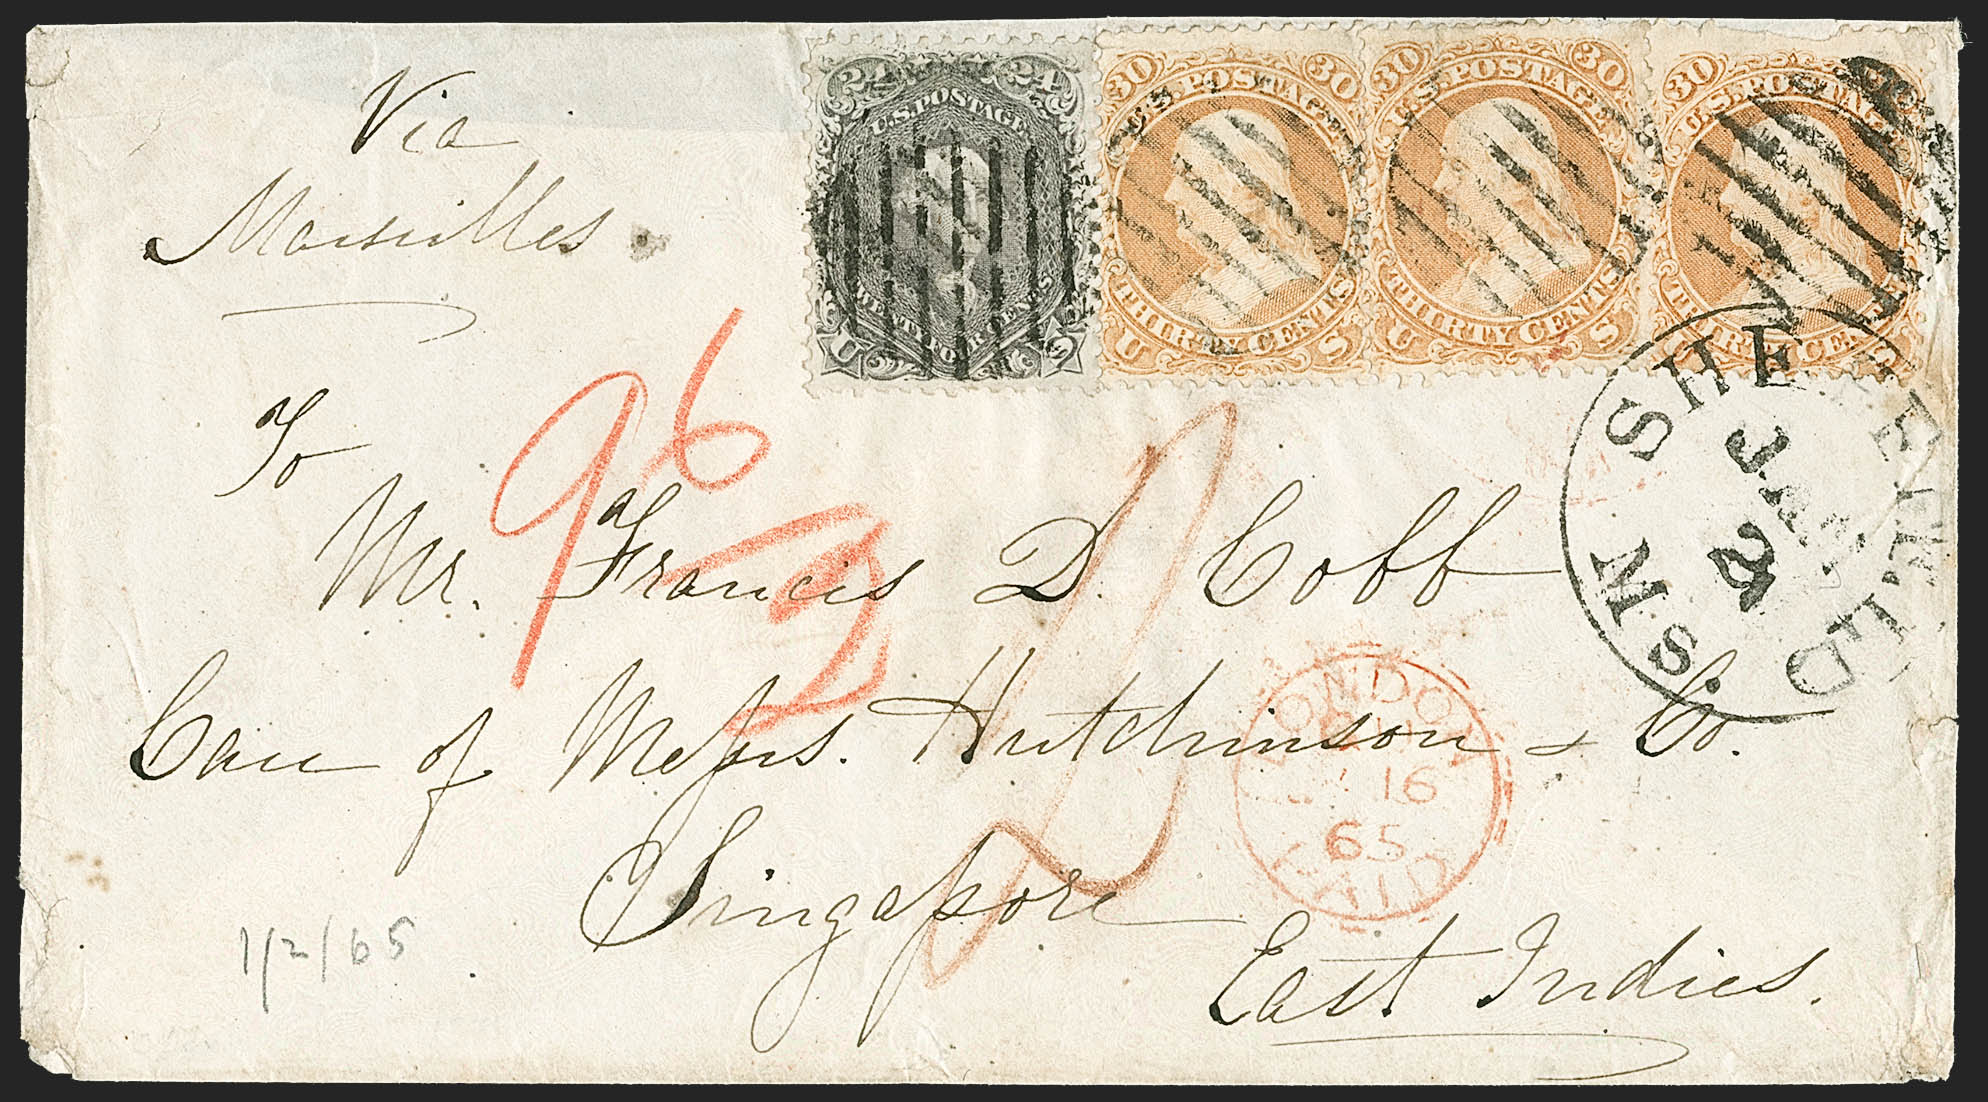 Via
Marseilles.
24 24
U.S. POSTAGE
TWENTY FOUR CENTS
U S
30 30
U.S. POSTAGE
THIRTY CENTS
U S
30 30
U.S. POSTAGE
THIRTY CENTS
U S
30
U.S. POSTAGE
THIRTY CENTS
U S
SHEFFIELD MS
JAN
2
96
2
To
Mr. Francis D. Cobb
Care of Messrs. Hutchinson & Co.
Singapore
East Indies.
LONDON
16
65
PAID
1/2/65